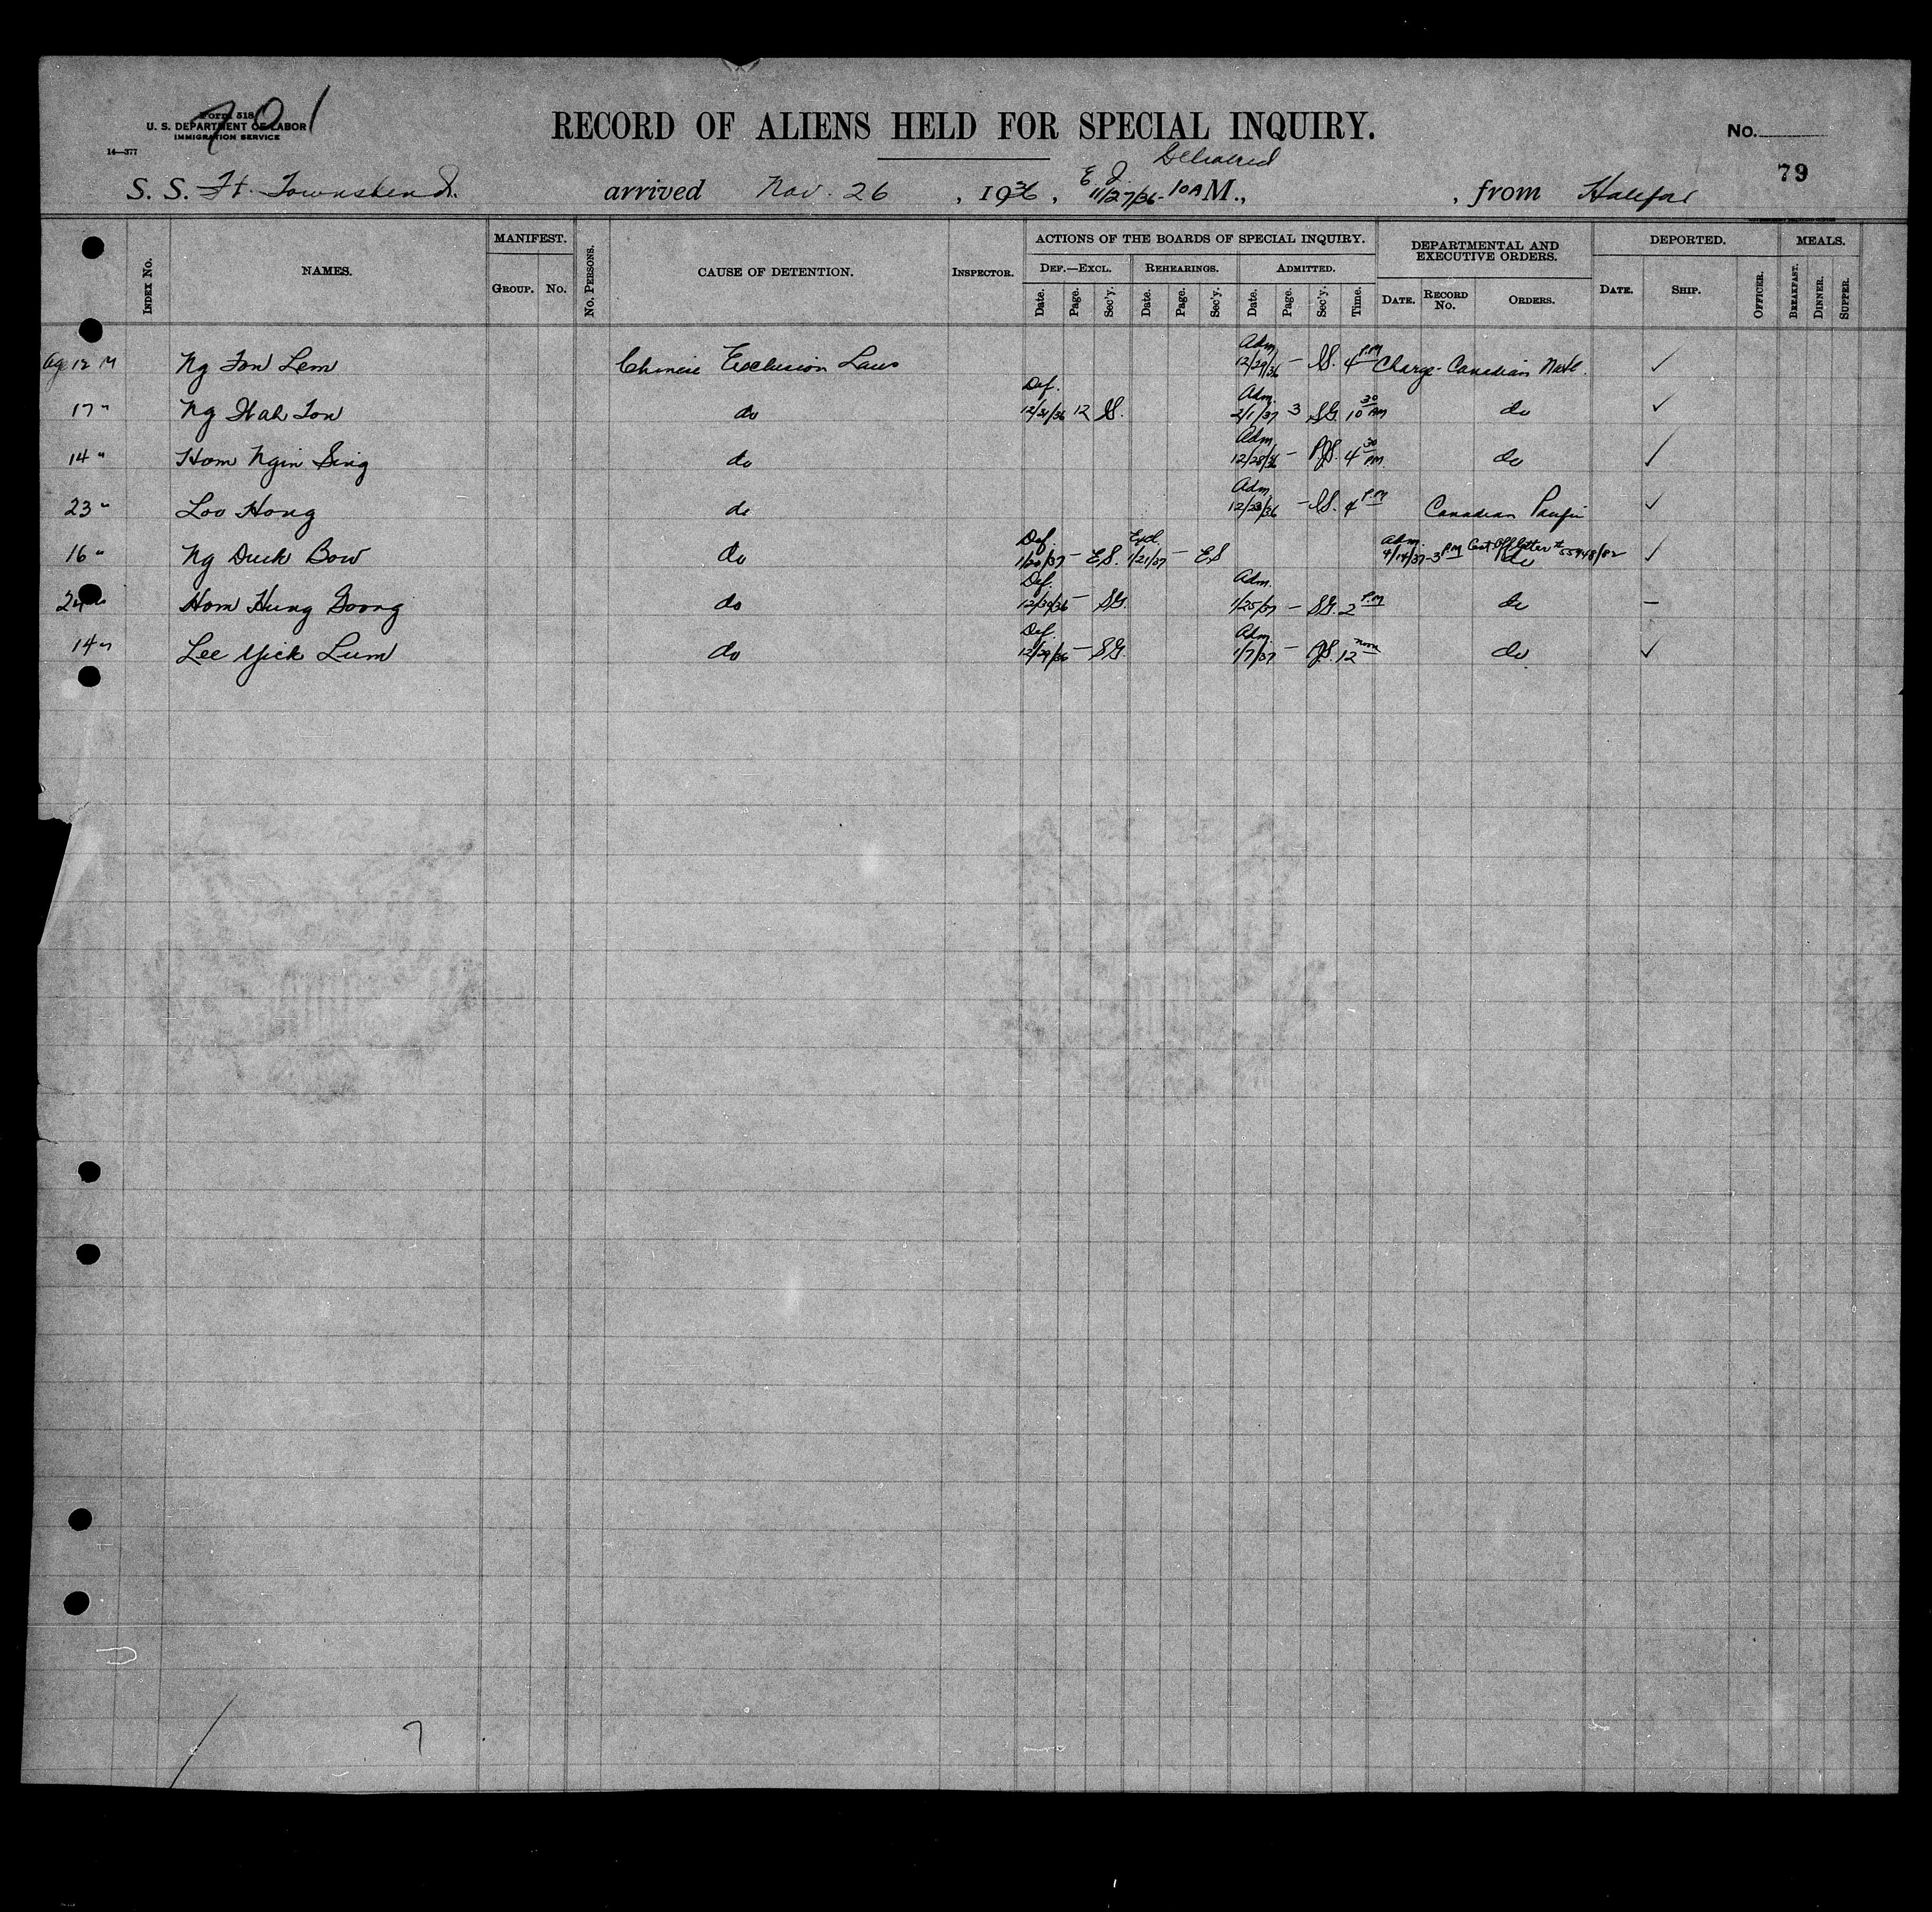 701
Form 518
U. S. DEPARTMENT OF LABOR
IMMIGRATION SERVICE
14—377
RECORD OF ALIENS HELD FOR SPECIAL INQUIRY.
No.
79
Delivered
S. S. Ft. Townshend arrived Nov. 26, 1936, E. I. 11/27/36 - 10 A M., , from Halifax
INDEX No. NAMES. MANIFEST. GROUP. No. No. PERSONS. CAUSE OF DETENTION. INSPECTOR. ACTIONS OF THE BOARDS OF SPECIAL INQUIRY. DEF.—EXCL. Date. Page. Sec'y. REHEARINGS. Date. Page. Sec'y. ADMITTED. Date. Page. Sec'y. Time. DEPARTMENTAL AND EXECUTIVE ORDERS. DATE. RECORD No. ORDERS. DEPORTED. DATE. SHIP. OFFICER. MEALS. BREAKFAST. DINNER. SUPPER.
Age 12 M Ng Fon Lem Chinese Exclusion Laws Adm. 12/29/36 — 4 PM Charge - Canadian Natl. ✓
17 " Ng Wah Ton do Def. 12/31/36 12 Adm. 2/1/37 3 SG. 10 30 AM do ✓
14 " Hom Ngin Sing do Adm. 12/28/36 — 4 30 PM do ✓
23 " Loo Hong do Adm. 12/23/36 — 4 PM Canadian Pacific ✓
16 " Ng Duck Bow do Def. 1/20/37 — ES. Excl. 1/21/37 — ES Adm. 4/14/37 - 3 PM Cent Off letter # 55948/82 do ✓
24 " Hom Hung Goong do Def. 12/30/36 — SG. Adm. 1/25/37 — SG. 2 PM do —
14 " Lee Yick Lum do Def. 12/29/36 — SG. Adm. 1/7/37 — JS. 12 noon do ✓
7